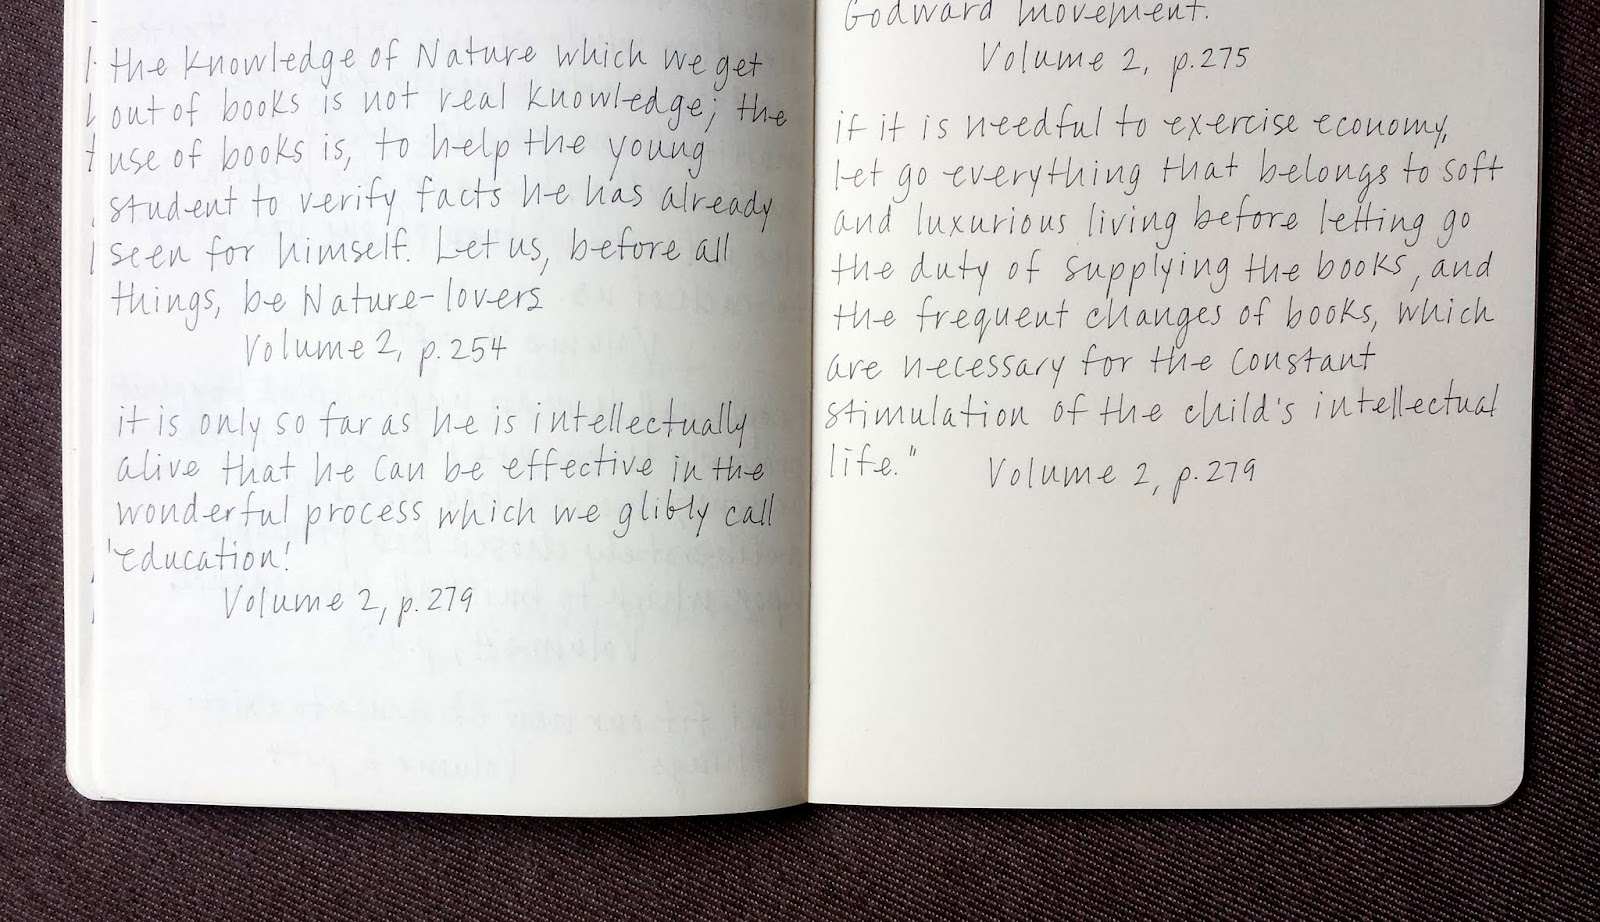 the knowledge of Nature which we get
out of books is not real knowledge; the
use of books is, to help the young
student to verify facts he has already
seen for himself. Let us, before all
things, be Nature-lovers
Volume 2, p.254
it is only so far as he is intellectually
alive that he can be effective in the
wonderful process which we glibly call
'education.'
Volume 2, p.279
Godward movement.
Volume 2, p.275
if it is needful to exercise economy,
let go everything that belongs to soft
and luxurious living before letting go
the duty of supplying the books, and
the frequent changes of books, which
are necessary for the constant
stimulation of the child's intellectual
life."
Volume 2, p.279